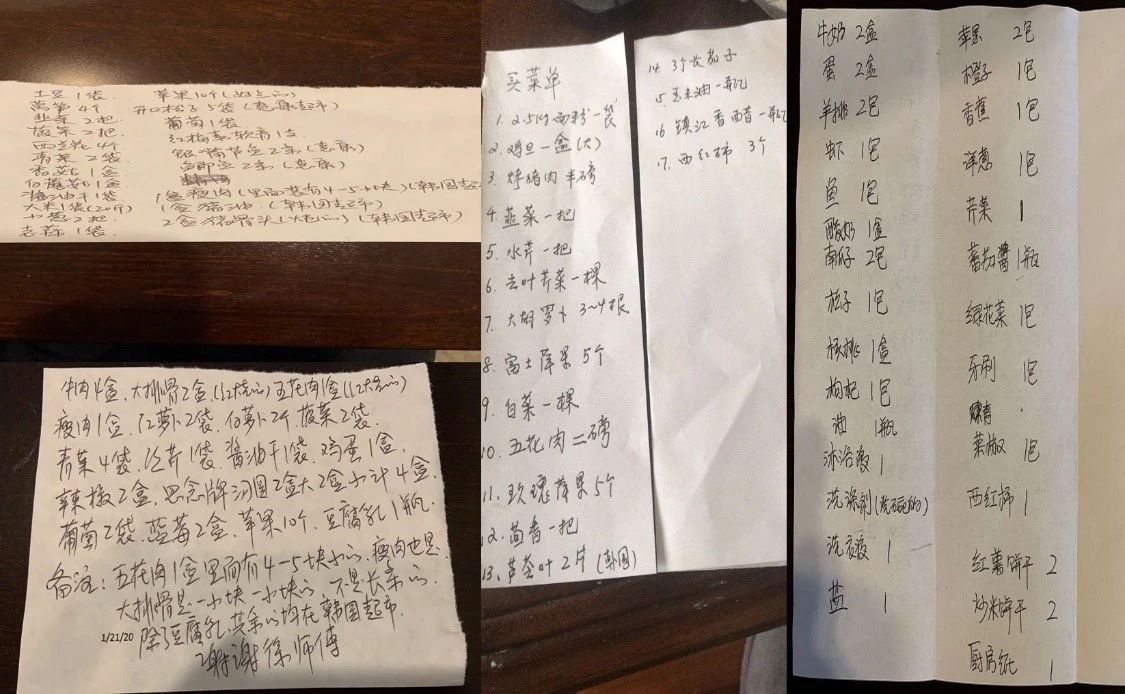 土豆1袋.
莴笋4个
韭菜2把.
菠菜2把.
西兰花4个
青菜2袋.
香菇1盒
白蘑菇1盒
酱油干1袋
大米1袋(20斤)
小葱2把.
大蒜1袋.
苹果10个(好点的)
开口松子5袋(惠康超市)
葡萄1袋
红梅素软膏1支
2条(惠康)
2条(惠康)
1盒瘦肉(里面若有4-5小块)(韩国超
1盒猪油.(韩国超市)
2盒猪骨头(大点的)(韩国超市)
牛肉4盒、大排骨2盒.(12块的)五花肉1盒(12块的)
瘦肉1盒、红萝卜2袋、白萝卜2个、菠菜2袋、
青菜4袋、泣芹1袋、酱油干1袋、鸡蛋1盒、
辣椒2盒、思念牌汤圆2盒大2盒小计4盒、
葡萄2袋、蓝莓2盒、苹果10个、豆腐乳1瓶.
备注:五花肉1盒里面有4-5块小的.瘦肉也是.
大排骨是一小块一小块的不是长条的.
1/21/20
除了豆腐乳、其余的均在韩国超市.
谢谢徐师傅
买菜单
1. 2.5kg面粉一袋
2. 鸡旦一盒(大)
3. 烤猪肉半磅
4. 韭菜一把
5. 水芹一把
6. 去叶芹菜一棵
7. 大胡萝卜3~4根
8. 富士苹果5个
9. 白菜一棵
10. 五花肉二磅
11. 玫瑰苹果5个
12. 茴香一把
13. 芦荟叶2片(韩国)
14. 3个长茄子
15. 玉米油一瓶
16. 镇江香醋一瓶
17. 西红柿 3个
牛奶 2盒
蛋 2盒
羊排 2包
虾 1包
鱼 1包
酸奶 1盒
南瓜子 2包
松子 1包
核桃 1盒
枸杞 1包
油 1瓶
沐浴液 1
洗涤剂(洗碗的)
洗衣液 1
盐 1
苹果 2包
橙子 1包
香蕉 1包
洋葱 1包
芹菜 1
蕃茄醬 1瓶
绿花菜 1包
牙刷 1包
菜椒 1包
西红柿 1
红薯饼干 2
炒米饼干 2
厨房纸 1